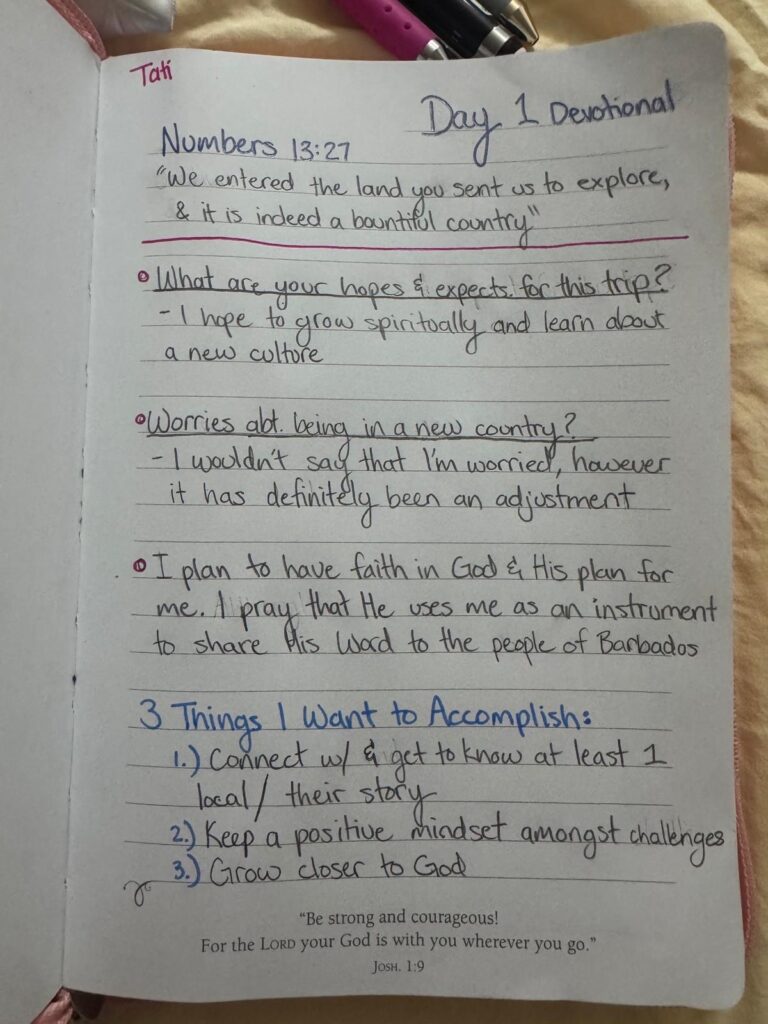 Tati
Day 1 Devotional
Numbers 13:27
"We entered the land you sent us to explore,
& it is indeed a bountiful country"
What are your hopes & expects. for this trip?
- I hope to grow spiritually and learn about
a new culture
Worries abt. being in a new country?
- I wouldn't say that I'm worried, however
it has definitely been an adjustment
I plan to have faith in God & His plan for
me. I pray that He uses me as an instrument
to share His Word to the people of Barbados
3 Things I Want to Accomplish:
1.) Connect w/ & get to know at least 1
local/ their story
2.) Keep a positive mindset amongst challenges
3.) Grow closer to God
"Be strong and courageous!
For the LORD your God is with you wherever you go."
JOSH. 1:9